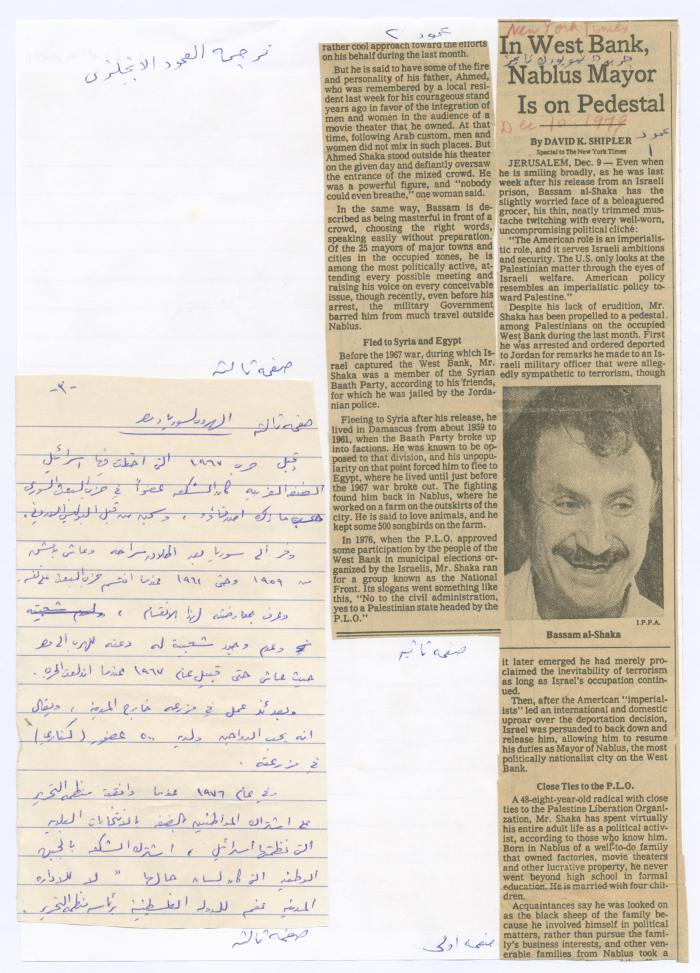 New York Times
In West Bank,
جريدة نيويورك تايمز
Nablus Mayor
Is on Pedestal
Dec 10 1979
عمود ١
By DAVID K. SHIPLER
Special to The New York Times
JERUSALEM, Dec. 9 — Even when
he is smiling broadly, as he was last
week after his release from an Israeli
prison, Bassam al-Shaka has the
slightly worried face of a beleaguered
grocer, his thin, neatly trimmed mus-
tache twitching with every well-worn,
uncompromising political cliché:
"The American role is an imperialis-
tic role, and it serves Israeli ambitions
and security. The U.S. only looks at the
Palestinian matter through the eyes of
Israeli welfare. American policy
resembles an imperialistic policy to-
ward Palestine."
Despite his lack of erudition, Mr.
Shaka has been propelled to a pedestal
among Palestinians on the occupied
West Bank during the last month. First
he was arrested and ordered deported
to Jordan for remarks he made to an Is-
raeli military officer that were alleg-
edly sympathetic to terrorism, though
I.P.P.A.
Bassam al-Shaka
it later emerged he had merely pro-
claimed the inevitability of terrorism
as long as Israel's occupation contin-
ued.
Then, after the American "imperial-
ists" led an international and domestic
uproar over the deportation decision,
Israel was persuaded to back down and
release him, allowing him to resume
his duties as Mayor of Nablus, the most
politically nationalist city on the West
Bank.
Close Ties to the P.L.O.
A 48-eight-year-old radical with close
ties to the Palestine Liberation Organi-
zation, Mr. Shaka has spent virtually
his entire adult life as a political activ-
ist, according to those who know him.
Born in Nablus of a well-to-do family
that owned factories, movie theaters
and other lucrative property, he never
went beyond high school in formal
education. He is married with four chil-
dren.
Acquaintances say he was looked on
as the black sheep of the family be-
cause he involved himself in political
matters, rather than pursue the fami-
ly's business interests, and other ven-
erable families from Nablus took a
صفحة اولى
عمود ٢
rather cool approach toward the efforts
on his behalf during the last month.
But he is said to have some of the fire
and personality of his father, Ahmed,
who was remembered by a local resi-
dent last week for his courageous stand
years ago in favor of the integration of
men and women in the audience of a
movie theater that he owned. At that
time, following Arab custom, men and
women did not mix in such places. But
Ahmed Shaka stood outside his theater
on the given day and defiantly oversaw
the entrance of the mixed crowd. He
was a powerful figure, and "nobody
could even breathe," one woman said.
In the same way, Bassam is de-
scribed as being masterful in front of a
crowd, choosing the right words,
speaking easily without preparation.
Of the 25 mayors of major towns and
cities in the occupied zones, he is
among the most politically active, at-
tending every possible meeting and
raising his voice on every conceivable
issue, though recently, even before his
arrest, the military Government
barred him from much travel outside
Nablus.
Fled to Syria and Egypt
Before the 1967 war, during which Is-
rael captured the West Bank, Mr.
Shaka was a member of the Syrian
Baath Party, according to his friends,
for which he was jailed by the Jorda-
nian police.
Fleeing to Syria after his release, he
lived in Damascus from about 1959 to
1961, when the Baath Party broke up
into factions. He was known to be op-
posed to that division, and his unpopu-
larity on that point forced him to flee to
Egypt, where he lived until just before
the 1967 war broke out. The fighting
found him back in Nablus, where he
worked on a farm on the outskirts of the
city. He is said to love animals, and he
kept some 500 songbirds on the farm.
In 1976, when the P.L.O. approved
some participation by the people of the
West Bank in municipal elections or-
ganized by the Israelis, Mr. Shaka ran
for a group known as the National
Front. Its slogans went something like
this, "No to the civil administration,
yes to a Palestinian state headed by the
P.L.O."
صفحة ثانية
ترجمة العمود الانجليزي
صفحة ثالثة
-٣-
صفحة ثالثة الهروب لسوريا ومصر
قبل حرب ١٩٦٧ التي احتلت فيها اسرائيل
الضفة الغربية كان الشكعة عضواً في حزب البعث السوري
وسجن من قبل البوليس الاردني.
وفر الى سوريا بعد اطلاق سراحه وعاش بدمشق
من ١٩٥٩ وحتى ١٩٦١ عندما انقسم حزب البعث على نفسه
وعرف بمعارضته لهذا الانقسام ،
وعدم وجود شعبية له دعته للهرب الى مصر
حيث عاش حتى قبيل عام ١٩٦٧ عندما اندلعت الحرب.
وبعدئذ عمل في مزرعة خارج المدينة ، ويقال
انه يحب الدواجن ولديه ٥٠٠ عصفور (كناري)
في مزرعته .
وفي عام ١٩٧٦ عندما وافقت منظمة التحرير
على اشتراك المواطنين بالضفة بالانتخابات البلدية
التي نظمتها اسرائيل ، اشترك الشكعة بالجبهة
الوطنية التي كان لسان حالها " لا للادارة
المدنية نعم للدولة الفلسطينية برئاسة منظمة التحرير.
صفحة ثالثة